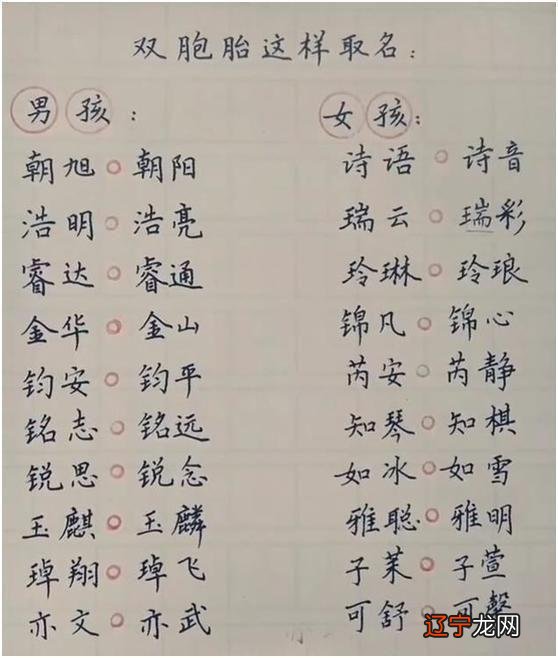 双胞胎这样取名：
男孩：
朝旭○朝阳
浩明○浩亮
睿达○睿通
金华○金山
钧安○钧平
铭志○铭远
锐思○锐念
玉麒○玉麟
琸翔○琸飞
亦文○亦武
女孩：
诗语○诗音
瑞云○瑞彩
玲琳○玲琅
锦凡○锦心
芮安○芮静
知琴○知棋
如冰○如雪
雅聪○雅明
子茉○子萱
可舒○可馨
辽宁龙网